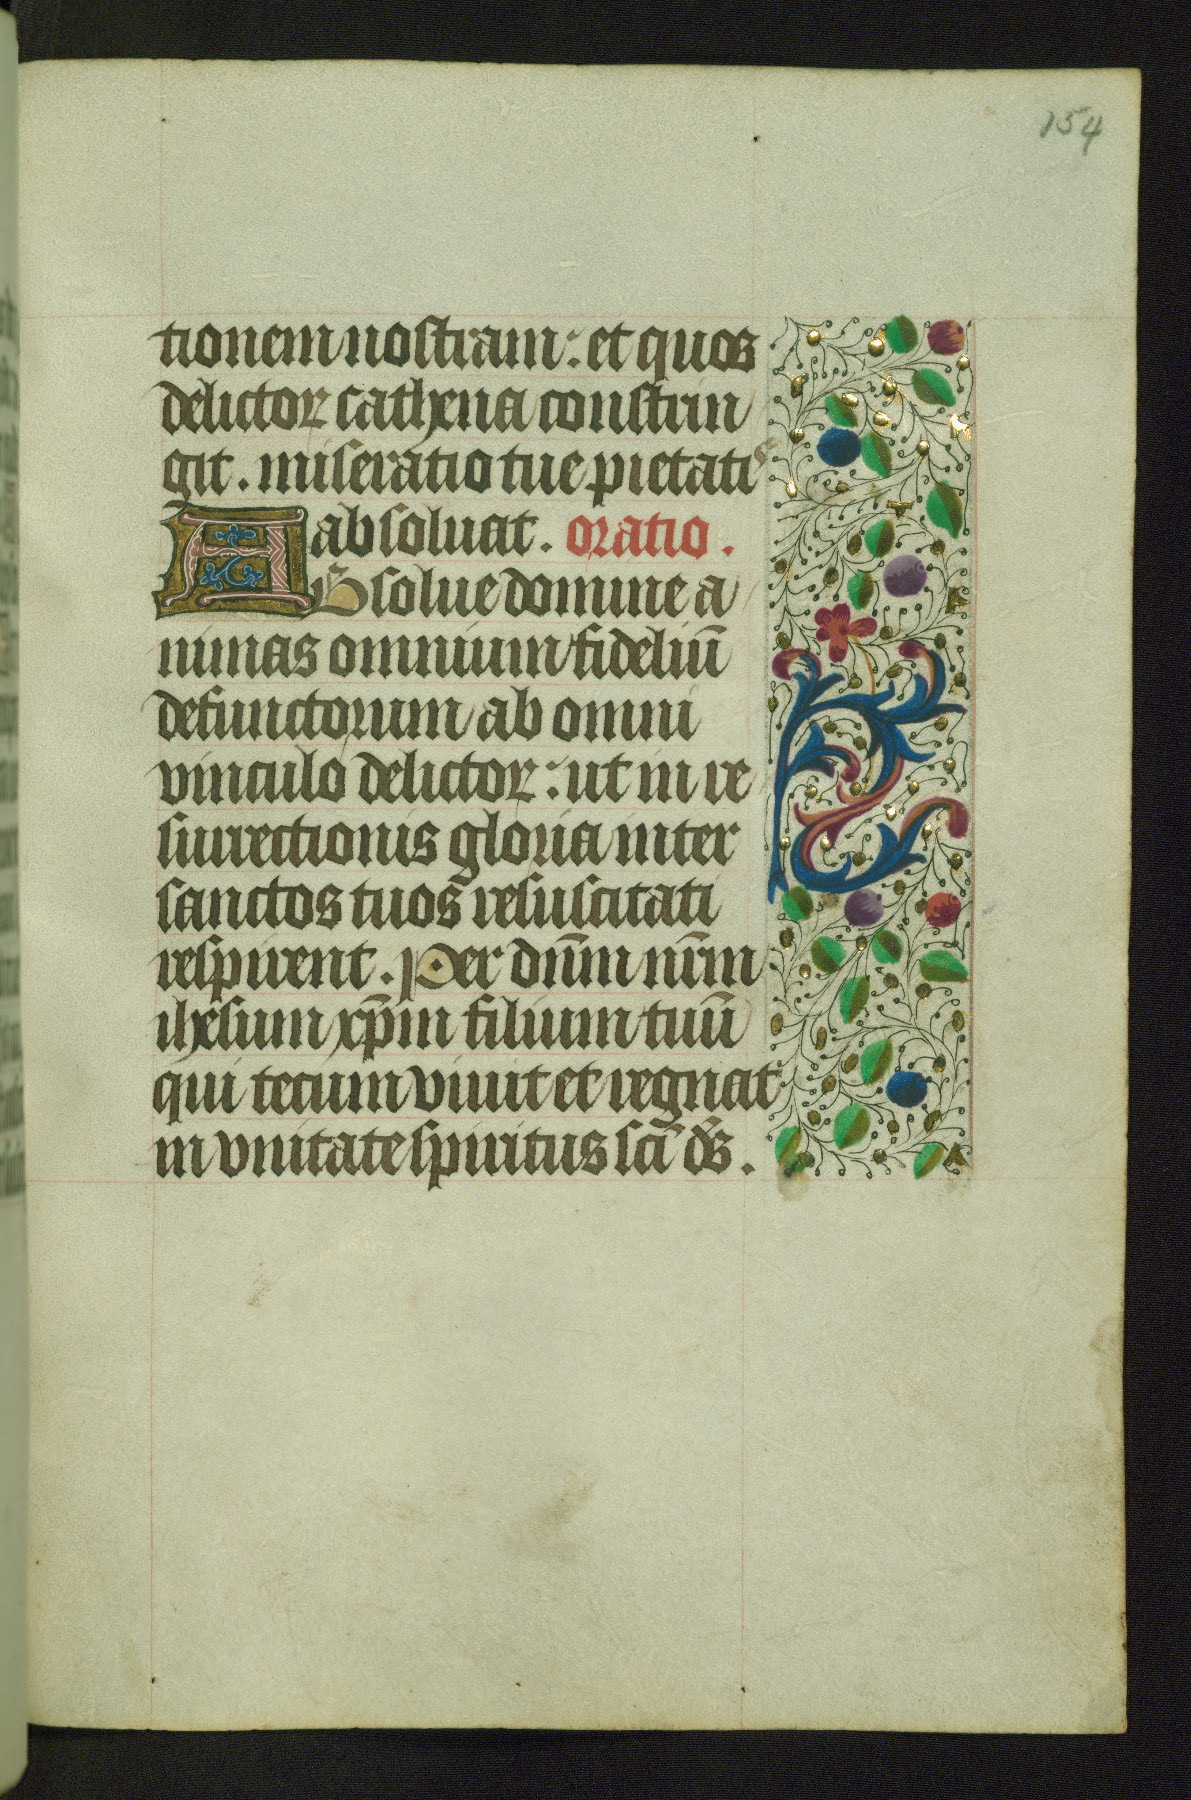 154
tionem nostram: et quos
delictoꝝ cathena constrin
git. miseratio tue pietatis
absoluat. oratio.
ABsolue domine a
nimas omnium fideliū
defunctorum ab omni
vinculo delictoꝝ: ut in re
surrectionis gloria inter
sanctos tuos resuscitati
respirent. Per dn̄m nr̄m
ihesum xp̄m filium tuū
qui tecum viuit et regnat
in vnitate spiritus sc̄i ds̄.